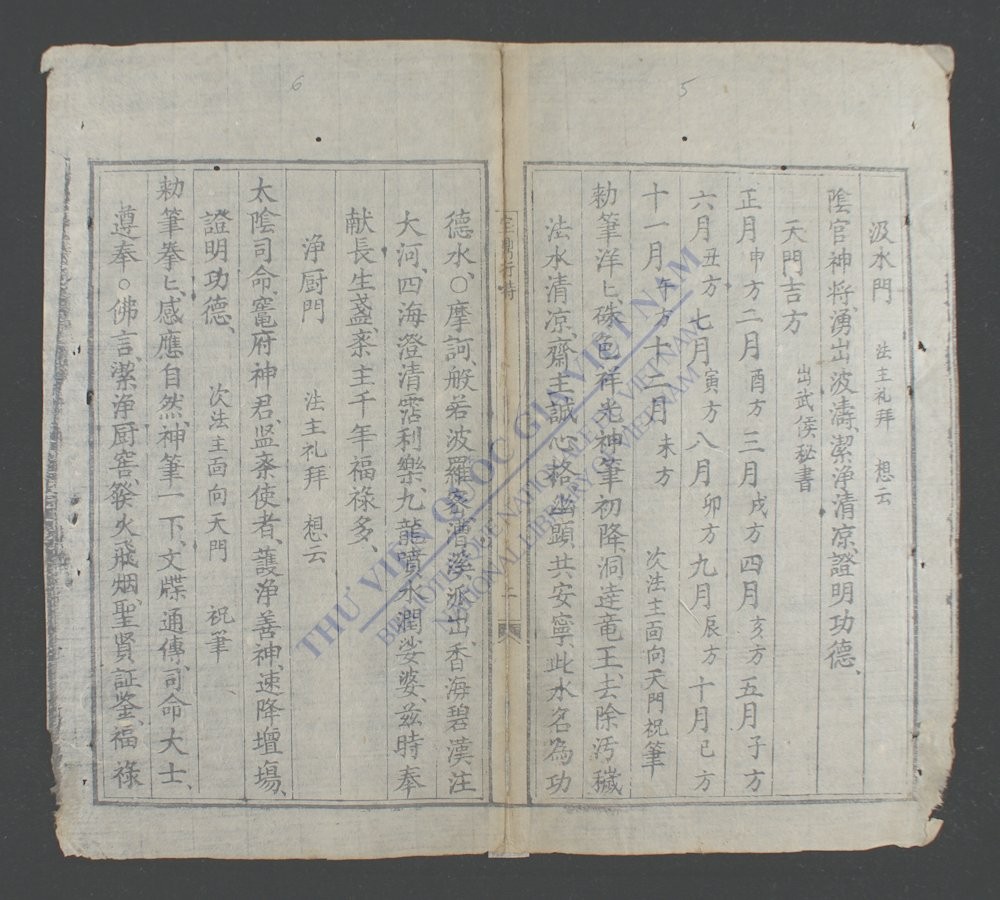 5
汲水門 法主礼拜 想云
陰官神将、湧出波濤、潔浄清凉、證明功德、
天門吉方 出武侯秘書
正月申方二月酉方三月戌方四月亥方五月子方
六月丑方七月寅方八月卯方九月辰方十月巳方
十一月午方十二月未方 次法主面向天門祝筆
勅筆洋〻、硃色祥光、神筆初降、洞達竜王、去除汚穢
法水清凉、齋主誠心格、幽顕共安寧、此水名為功
德水、○摩訶般若波羅密、漕溪派出、香海碧漢注
大河、四海澄清霑利樂、九龍噴水潤娑婆、兹時奉
献長生盞、斎主千年福祿多、
浄厨門 法主礼拜 想云
太陰司命、竈府神君、监斎使者、護浄善神、速降壇塲、
證明功德、 次法主面向天門 祝筆
勅筆拳〻、感應自然、神筆一下、文牒通傳、司命大士、
遵奉○佛言、潔浄厨窖、篌火飛烟、聖賢証鉴、福祿
6
上
THƯ VIỆN QUỐC GIA VIỆT NAM
BIBLIOTHÈQUE NATIONALE DU VIETNAM
NATIONAL LIBRARY OF VIETNAM